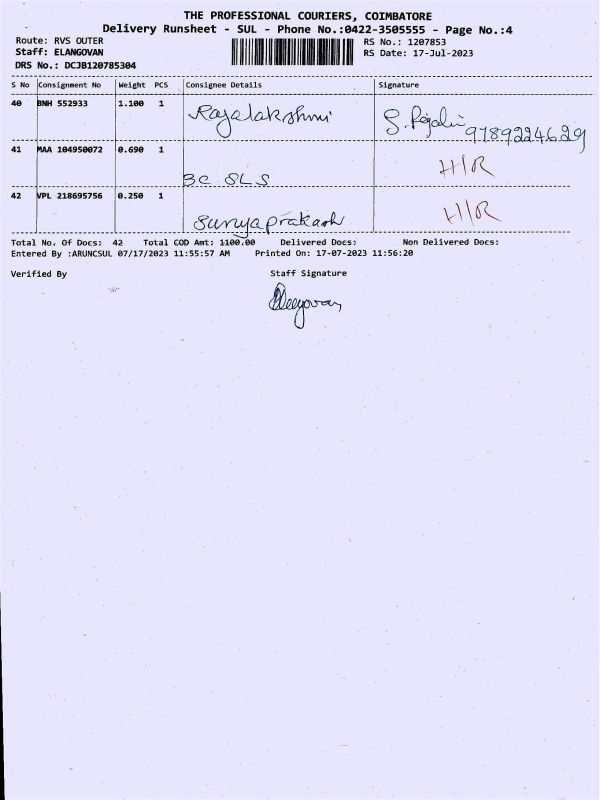 THE PROFESSIONAL COURIERS, COIMBATORE
Delivery Runsheet - SUL - Phone No.:0422-3505555 - Page No.:4
Route: RVS OUTER
RS No.: 1207853
Staff: ELANGOVAN
RS Date: 17-Jul-2023
DRS No.: DCJB120785304
S No Consignment No Weight PCS Consignee Details Signature
40 BNH 552933 1.100 1 Rajalakshmi 9789224629
41 MAA 104950072 0.690 1 BC SLS H/R
42 VPL 218695756 0.250 1 Suryaprakash H/R
Total No. Of Docs: 42 Total COD Amt: 1100.00 Delivered Docs: Non Delivered Docs:
Entered By :ARUNCSUL 07/17/2023 11:55:57 AM Printed On: 17-07-2023 11:56:20
Verified By Staff Signature